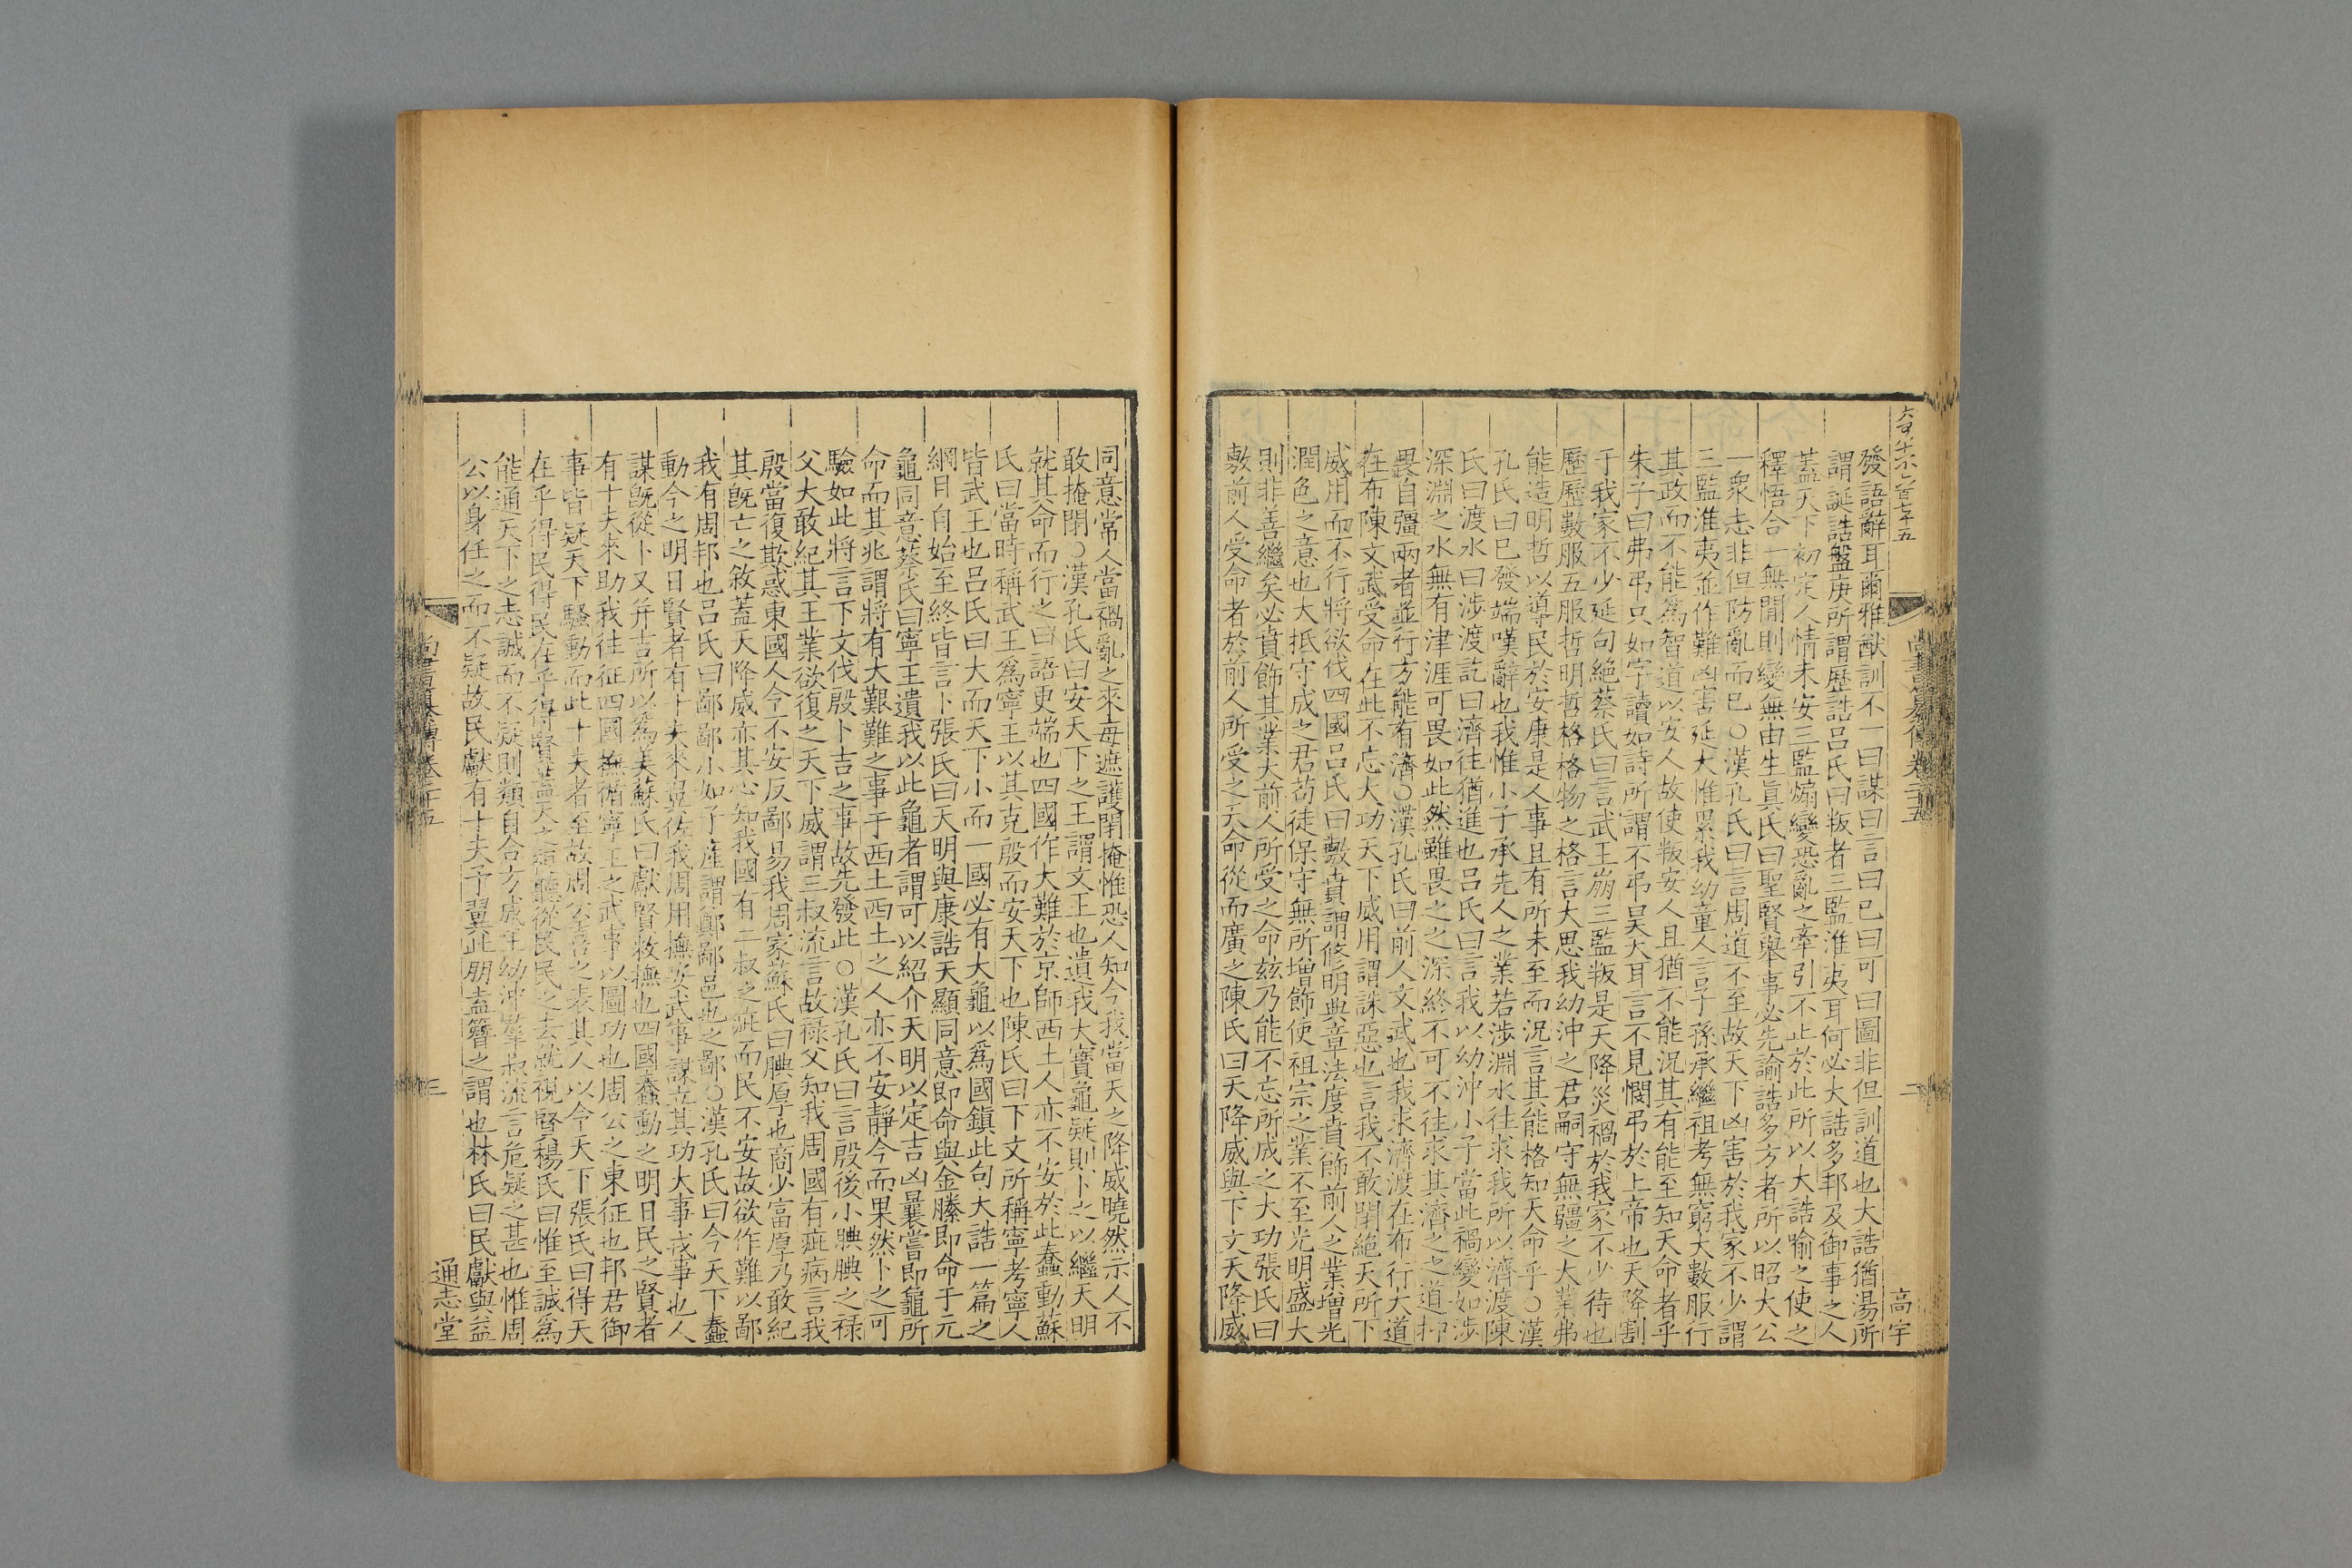 發語辭耳爾雅猷訓不一曰謀曰言曰已曰可曰圖非但訓道也大誥猶湯所
謂誕誥盤庚所謂歷誥呂氏曰叛者三監淮夷耳何必大誥多邦及御事之人
蓋天下初定人情未安三監煽變恐亂之牽引不止於此所以大誥喻之使之
釋悟合一無閒則變無由生眞氏曰聖賢舉事必先諭誥多方者所以昭大公
一衆志非但防亂而已○漢孔氏曰言周道不至故天下凶害於我家不少謂
三監淮夷並作難凶害延大惟累我幼童人言子孫承繼祖考無窮大數服行
其政而不能爲智道以安人故使叛安人且猶不能況其有能至知天命者乎
朱子曰弗弔只如字讀如詩所謂不弔昊天耳言不見憫弔於上帝也天降割
于我家不少延句絶蔡氏曰言武王崩三監叛是天降災禍於我家不少待也
歷歷數服五服哲明哲格格物之格言大思我幼沖之君嗣守無疆之大業弗
能造明哲以導民於安康是人事且有所未至而況言其能格知天命乎○漢
孔氏曰已發端嘆辭也我惟小子承先人之業若涉淵水往求我所以濟渡陳
氏曰渡水曰涉渡訖曰濟往猶進也呂氏曰言我以幼沖小子當此禍變如涉
深淵之水無有津涯可畏如此然雖畏之之深終不可不往求其濟之之道抑
畏自彊兩者並行方能有濟○漢孔氏曰前人文武也我求濟渡在布行大道
在布陳文武受命在此不忘大功天下威用謂誅惡也言我不敢閉絶天所下
威用而不行將欲伐四國呂氏曰敷賁謂修明典章法度賁飾前人之業增光
潤色之意也大抵守成之君苟徒保守無所增飾使祖宗之業不至光明盛大
則非善繼矣必賁飾其業大前人所受之命兹乃能不忘所成之大功張氏曰
敷前人受命者於前人所受之元命從而廣之陳氏曰天降威與下文天降威
高宇
同意常人當禍亂之來毎遮護閉掩惟恐人知今我當天之降威曉然示人不
敢掩閉○漢孔氏曰安天下之王謂文王也遺我大寶龜疑則卜之以繼天明
就其命而行之曰語更端也四國作大難於京師西土人亦不安於此蠢動蘇
氏曰當時稱武王爲寧王以其克殷而安天下也陳氏曰下文所稱寧考寧人
皆武王也呂氏曰大而天下小而一國必有大龜以爲國鎮此句大誥一篇之
綱目自始至終皆言卜張氏曰天明與康誥天顯同意即命與金縢即命于元
龜同意蔡氏曰寧王遺我以此龜者謂可以紹介天明以定吉凶曩嘗即龜所
命而其兆謂將有大艱難之事于西土西土之人亦不安靜今而果然卜之可
驗如此將言下文伐殷卜吉之事故先發此○漢孔氏曰言殷後小腆腆之祿
父大敢紀其王業欲復之天下威謂三叔流言故祿父知我周國有疵病言我
殷當復欺惑東國人令不安反鄙易我周家蘇氏曰腆厚也商少富厚乃敢紀
其旣亡之敘蓋天降威亦其心知我國有二叔之疵而民不安故欲作難以鄙
我有周邦也呂氏曰鄙鄙小如子産謂鄭鄙邑也之鄙○漢孔氏曰今天下蠢
動今之明日賢者有十夫來翼佐我周用撫安武事謀立其功大事戎事也人
謀旣從卜又并吉所以爲美蘇氏曰獻賢敉撫也四國蠢動之明日民之賢者
有十夫來助我往征四國撫循寧王之武事以圖功也周公之東征也邦君御
事皆疑天下騷動而此十夫者至故周公喜之表其人以令天下張氏曰得天
在乎得民得民在乎得賢蓋天之語聽從民民之去就視賢楊氏曰惟至誠爲
能通天下之志誠而不疑則類自合方成王幼沖羣叔流言危疑之甚也惟周
公以身任之而不疑故民獻有十夫予翼此朋盍簪之謂也林氏曰民獻與益
尚書纂傳卷二十五
三
通志堂